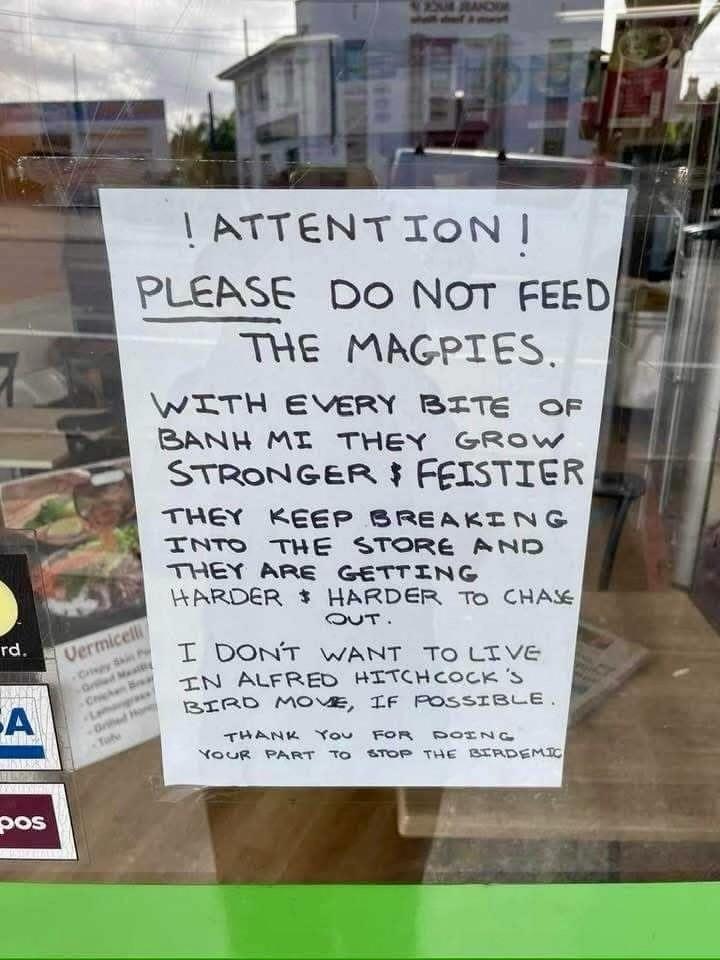 ! ATTENTION !
PLEASE DO NOT FEED
THE MAGPIES.
WITH EVERY BITE OF
BANH MI THEY GROW
STRONGER & FEISTIER
THEY KEEP BREAKING
INTO THE STORE AND
THEY ARE GETTING
HARDER & HARDER TO CHASE
OUT.
I DON'T WANT TO LIVE
IN ALFRED HITCHCOCK'S
BIRD MOVIE, IF POSSIBLE.
THANK YOU FOR DOING
YOUR PART TO STOP THE BIRDEMIC
rd.
Vermicelli
Crispy
Grilled
Chicken
Lemongrass
Grilled
Tofu
A
pos